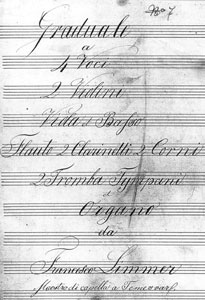 No 7
Graduale
a
4 Voci
2 Violini
Viola e Basso
Flauto 2 Clarinetti 2 Corni
2 Trombe Tympani
e
Organo
da
Francesco Limmer
Maestro di capella a Temesvar